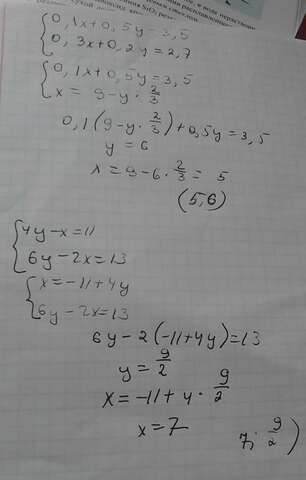 0,1x+0,5y=3,5
0,3x+0,2y=2,7
0,1x+0,5y=3,5
x = 9-y·2/3
0,1(9-y·2/3)+0,5y=3,5
y=6
x=9-6·2/3=5
(5,6)
4y-x=11
6y-2x=13
x=-11+4y
6y-2x=13
6y-2(-11+4y)=13
y=9/2
x=-11+4·9/2
x=7
7; 9/2)